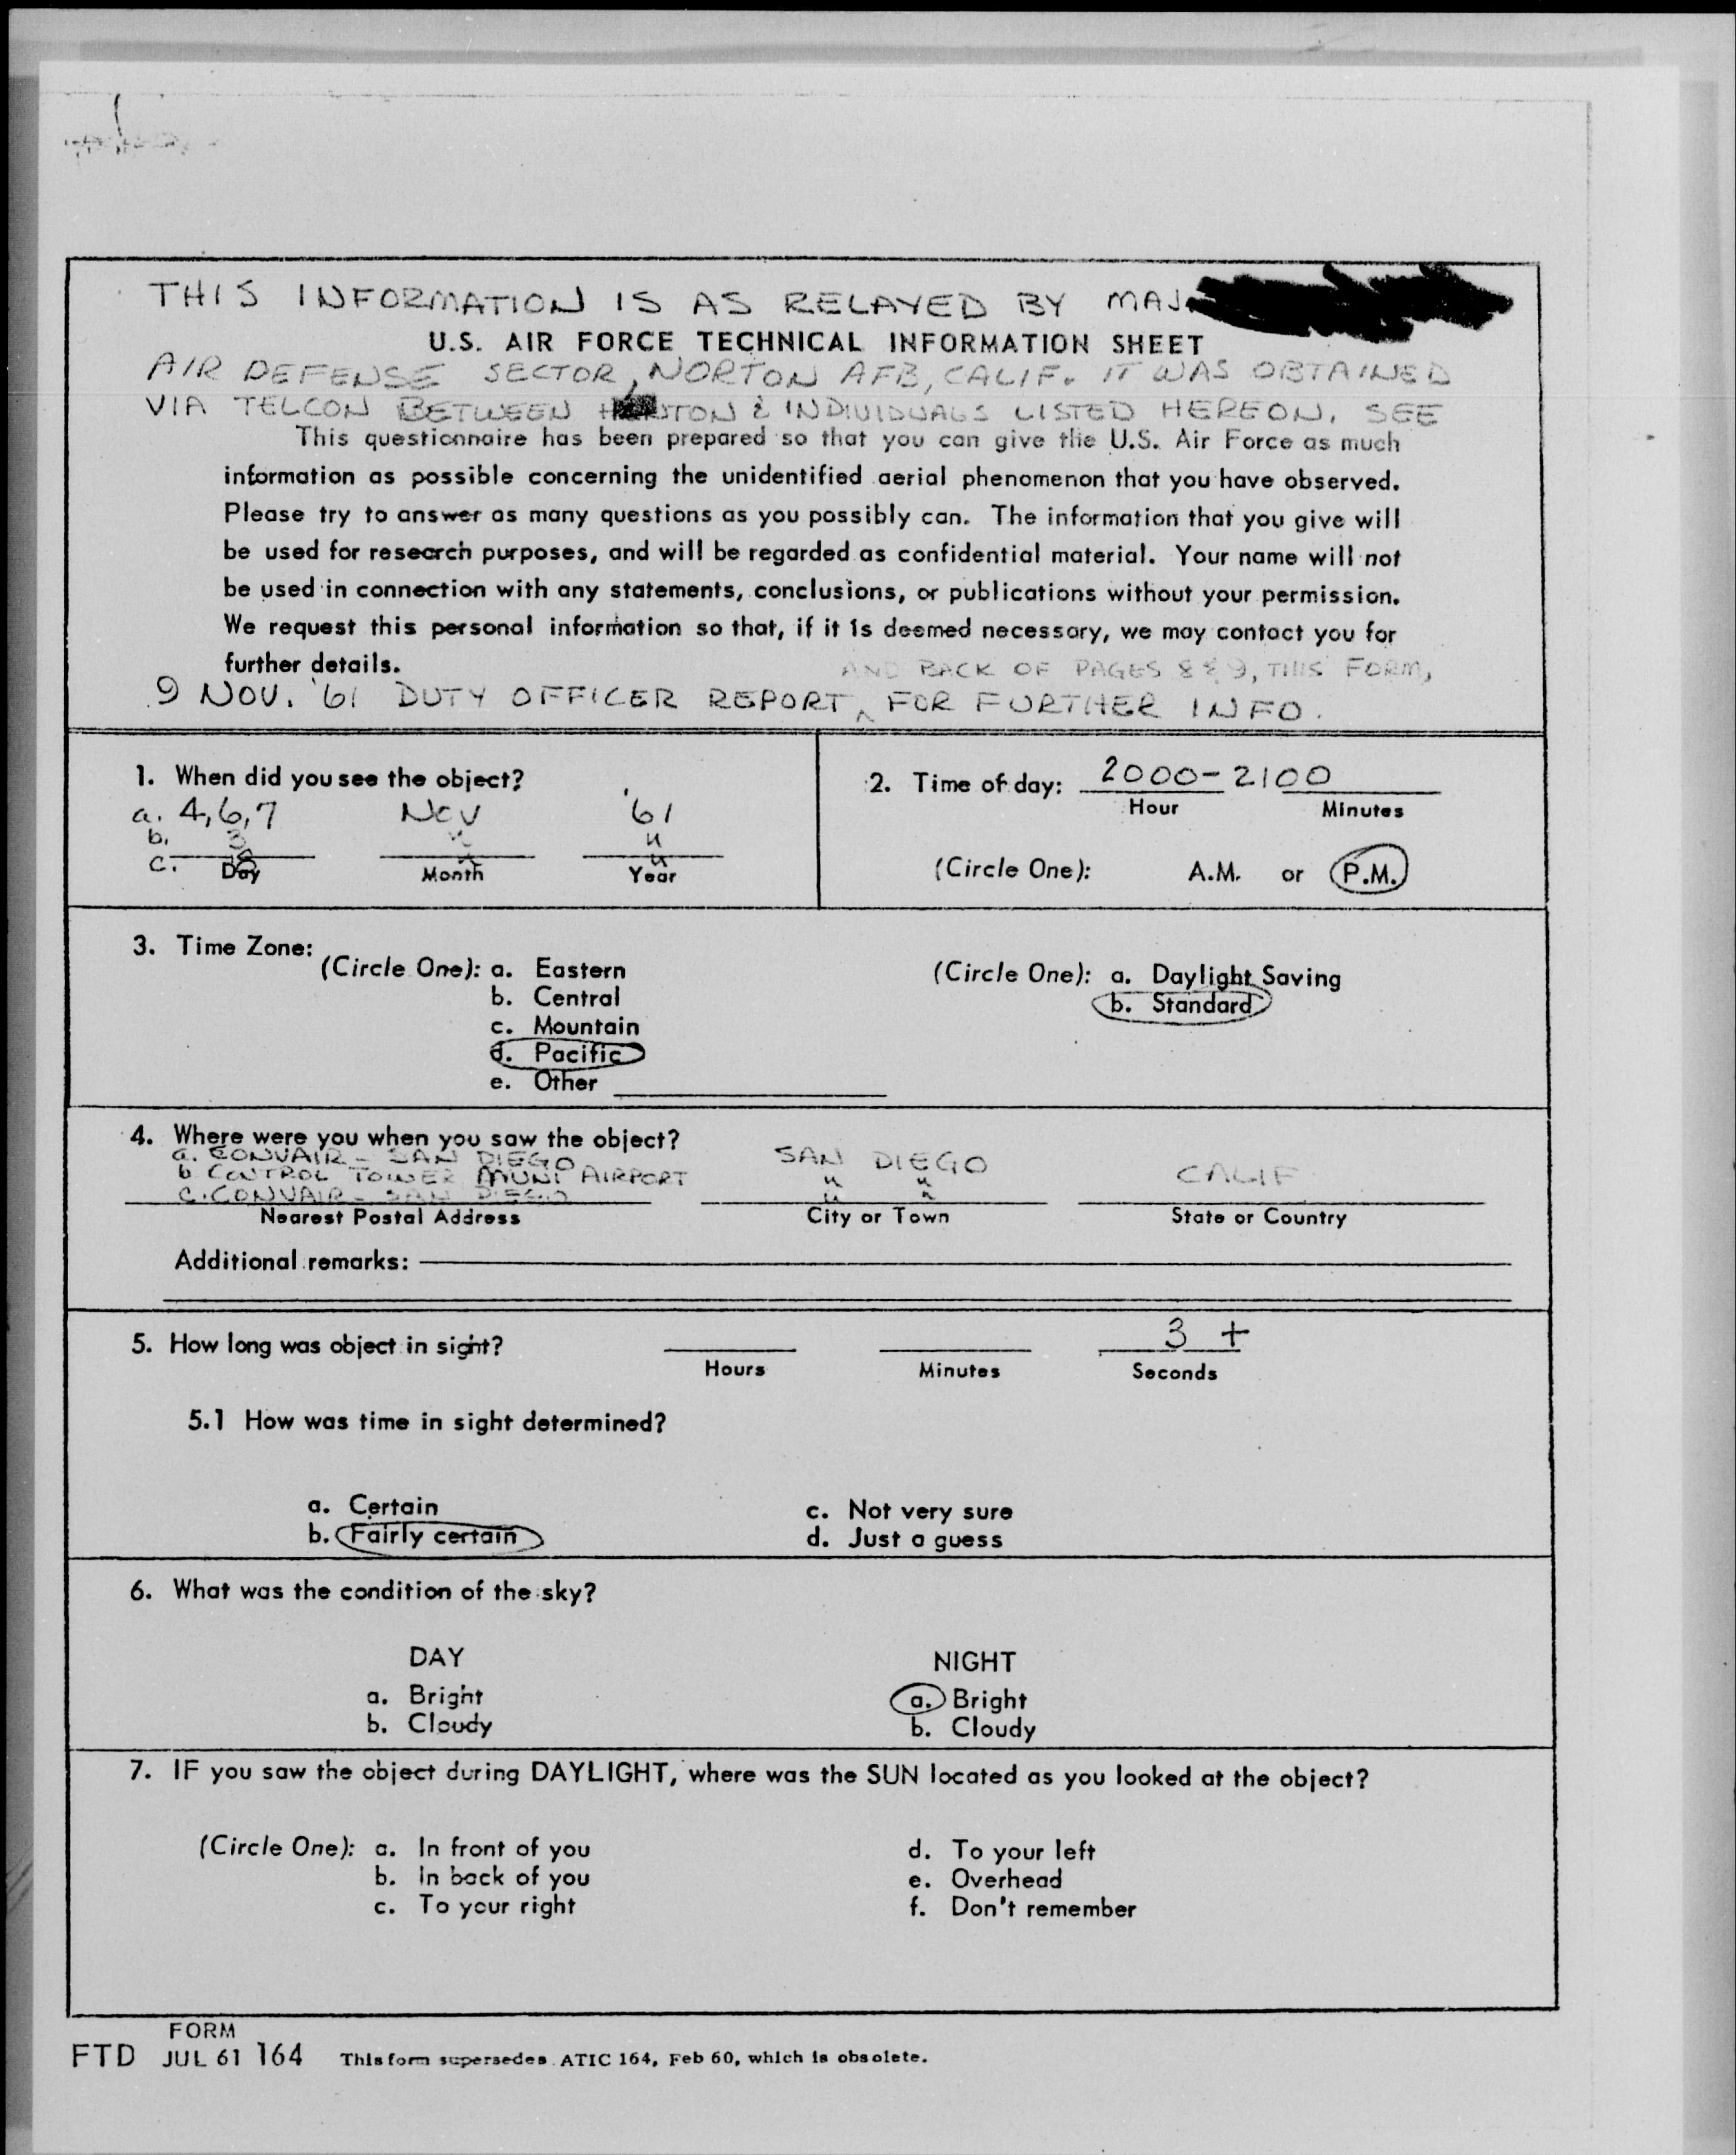 THIS INFORMATION IS AS RELAYED BY MAJ.
U.S. AIR FORCE TECHNICAL INFORMATION SHEET
AIR DEFENSE SECTOR, NORTON AFB, CALIF. IT WAS OBTAINED
VIA TELCON BETWEEN & INDIVIDUALS LISTED HEREON. SEE
This questionnaire has been prepared so that you can give the U.S. Air Force as much
information as possible concerning the unidentified aerial phenomenon that you have observed.
Please try to answer as many questions as you possibly can. The information that you give will
be used for research purposes, and will be regarded as confidential material. Your name will not
be used in connection with any statements, conclusions, or publications without your permission.
We request this personal information so that, if it is deemed necessary, we may contact you for
further details.
AND BACK OF PAGES 8 & 9, THIS FORM,
9 NOV. '61 DUTY OFFICER REPORT ^ FOR FURTHER INFO.
1. When did you see the object?
a. 4,6,7 NOV '61
b. 3 " "
c. 8 " "
Day Month Year
2. Time of day: 2000-2100
Hour Minutes
(Circle One): A.M. or P.M.
3. Time Zone:
(Circle One): a. Eastern
b. Central
c. Mountain
d. Pacific
e. Other
(Circle One): a. Daylight Saving
b. Standard
4. Where were you when you saw the object?
a. CONVAIR - SAN DIEGO SAN DIEGO CALIF
b CONTROL TOWER MUNI AIRPORT " "
c. CONVAIR - SAN DIEGO " "
Nearest Postal Address City or Town State or Country
Additional remarks:
5. How long was object in sight? 3 +
Hours Minutes Seconds
5.1 How was time in sight determined?
a. Certain
b. Fairly certain
c. Not very sure
d. Just a guess
6. What was the condition of the sky?
DAY
a. Bright
b. Cloudy
NIGHT
a. Bright
b. Cloudy
7. IF you saw the object during DAYLIGHT, where was the SUN located as you looked at the object?
(Circle One): a. In front of you
b. In back of you
c. To your right
d. To your left
e. Overhead
f. Don't remember
FORM
FTD JUL 61 164 This form supersedes ATIC 164, Feb 60, which is obsolete.